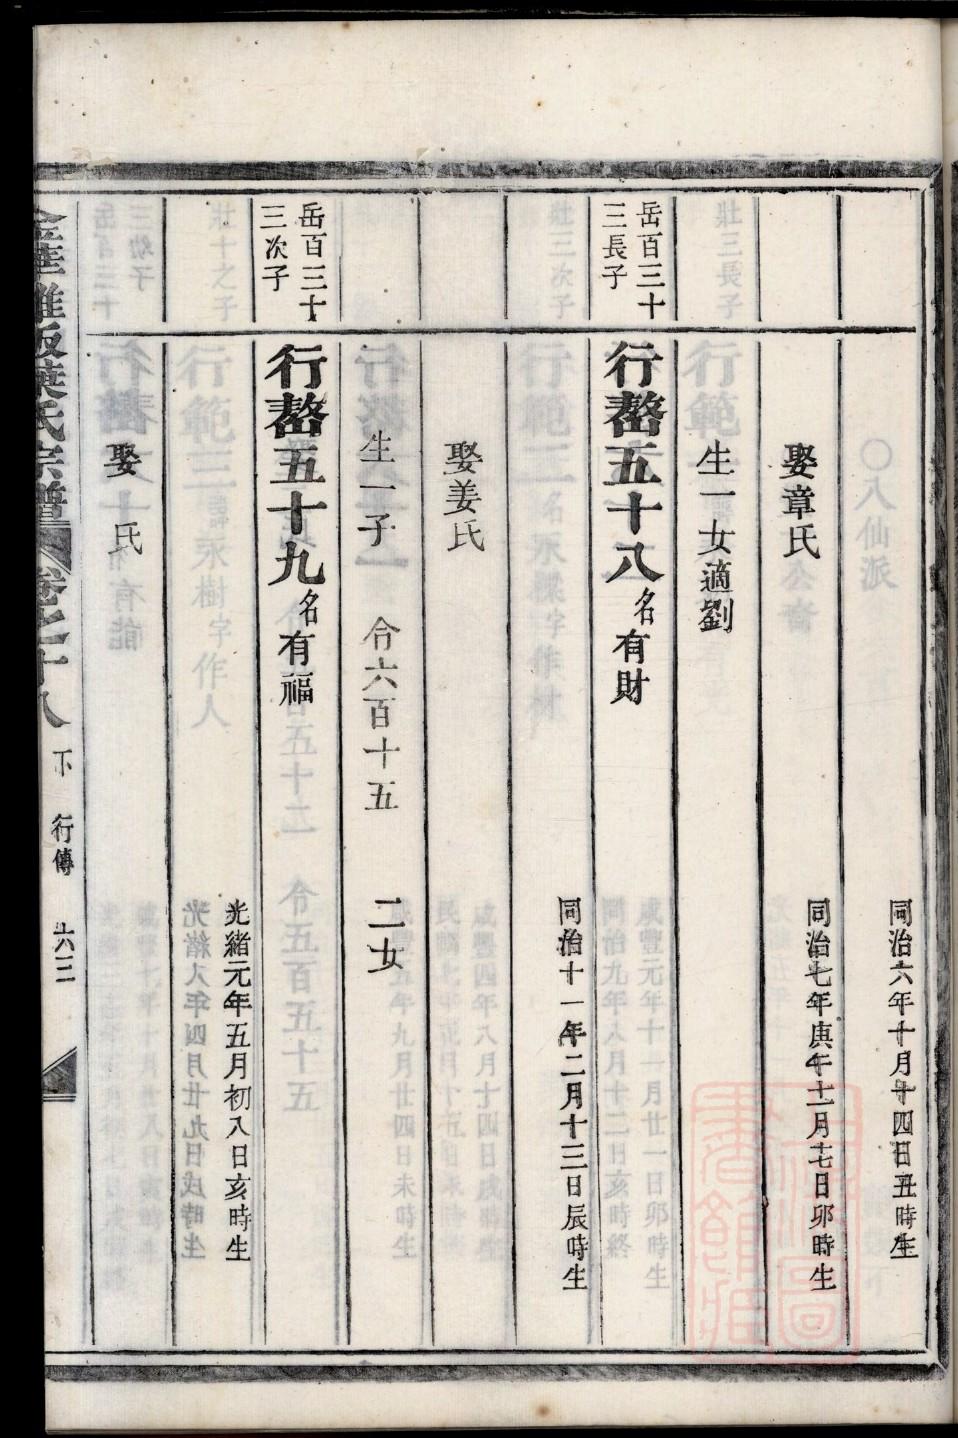 同治六年十月十四日丑時生
娶章氏
同治七年庚午十二月十七日卯時生
生一女適劉
岳百三十三長子
行嶅五十八名有財
同治十一年二月十三日辰時生
娶姜氏
生一子 令六百十五 二女
岳百三十三次子
行嶅五十九名有福
光緒元年五月初八日亥時生
娶 氏
葉氏宗譜 卷之十八 下 行傳